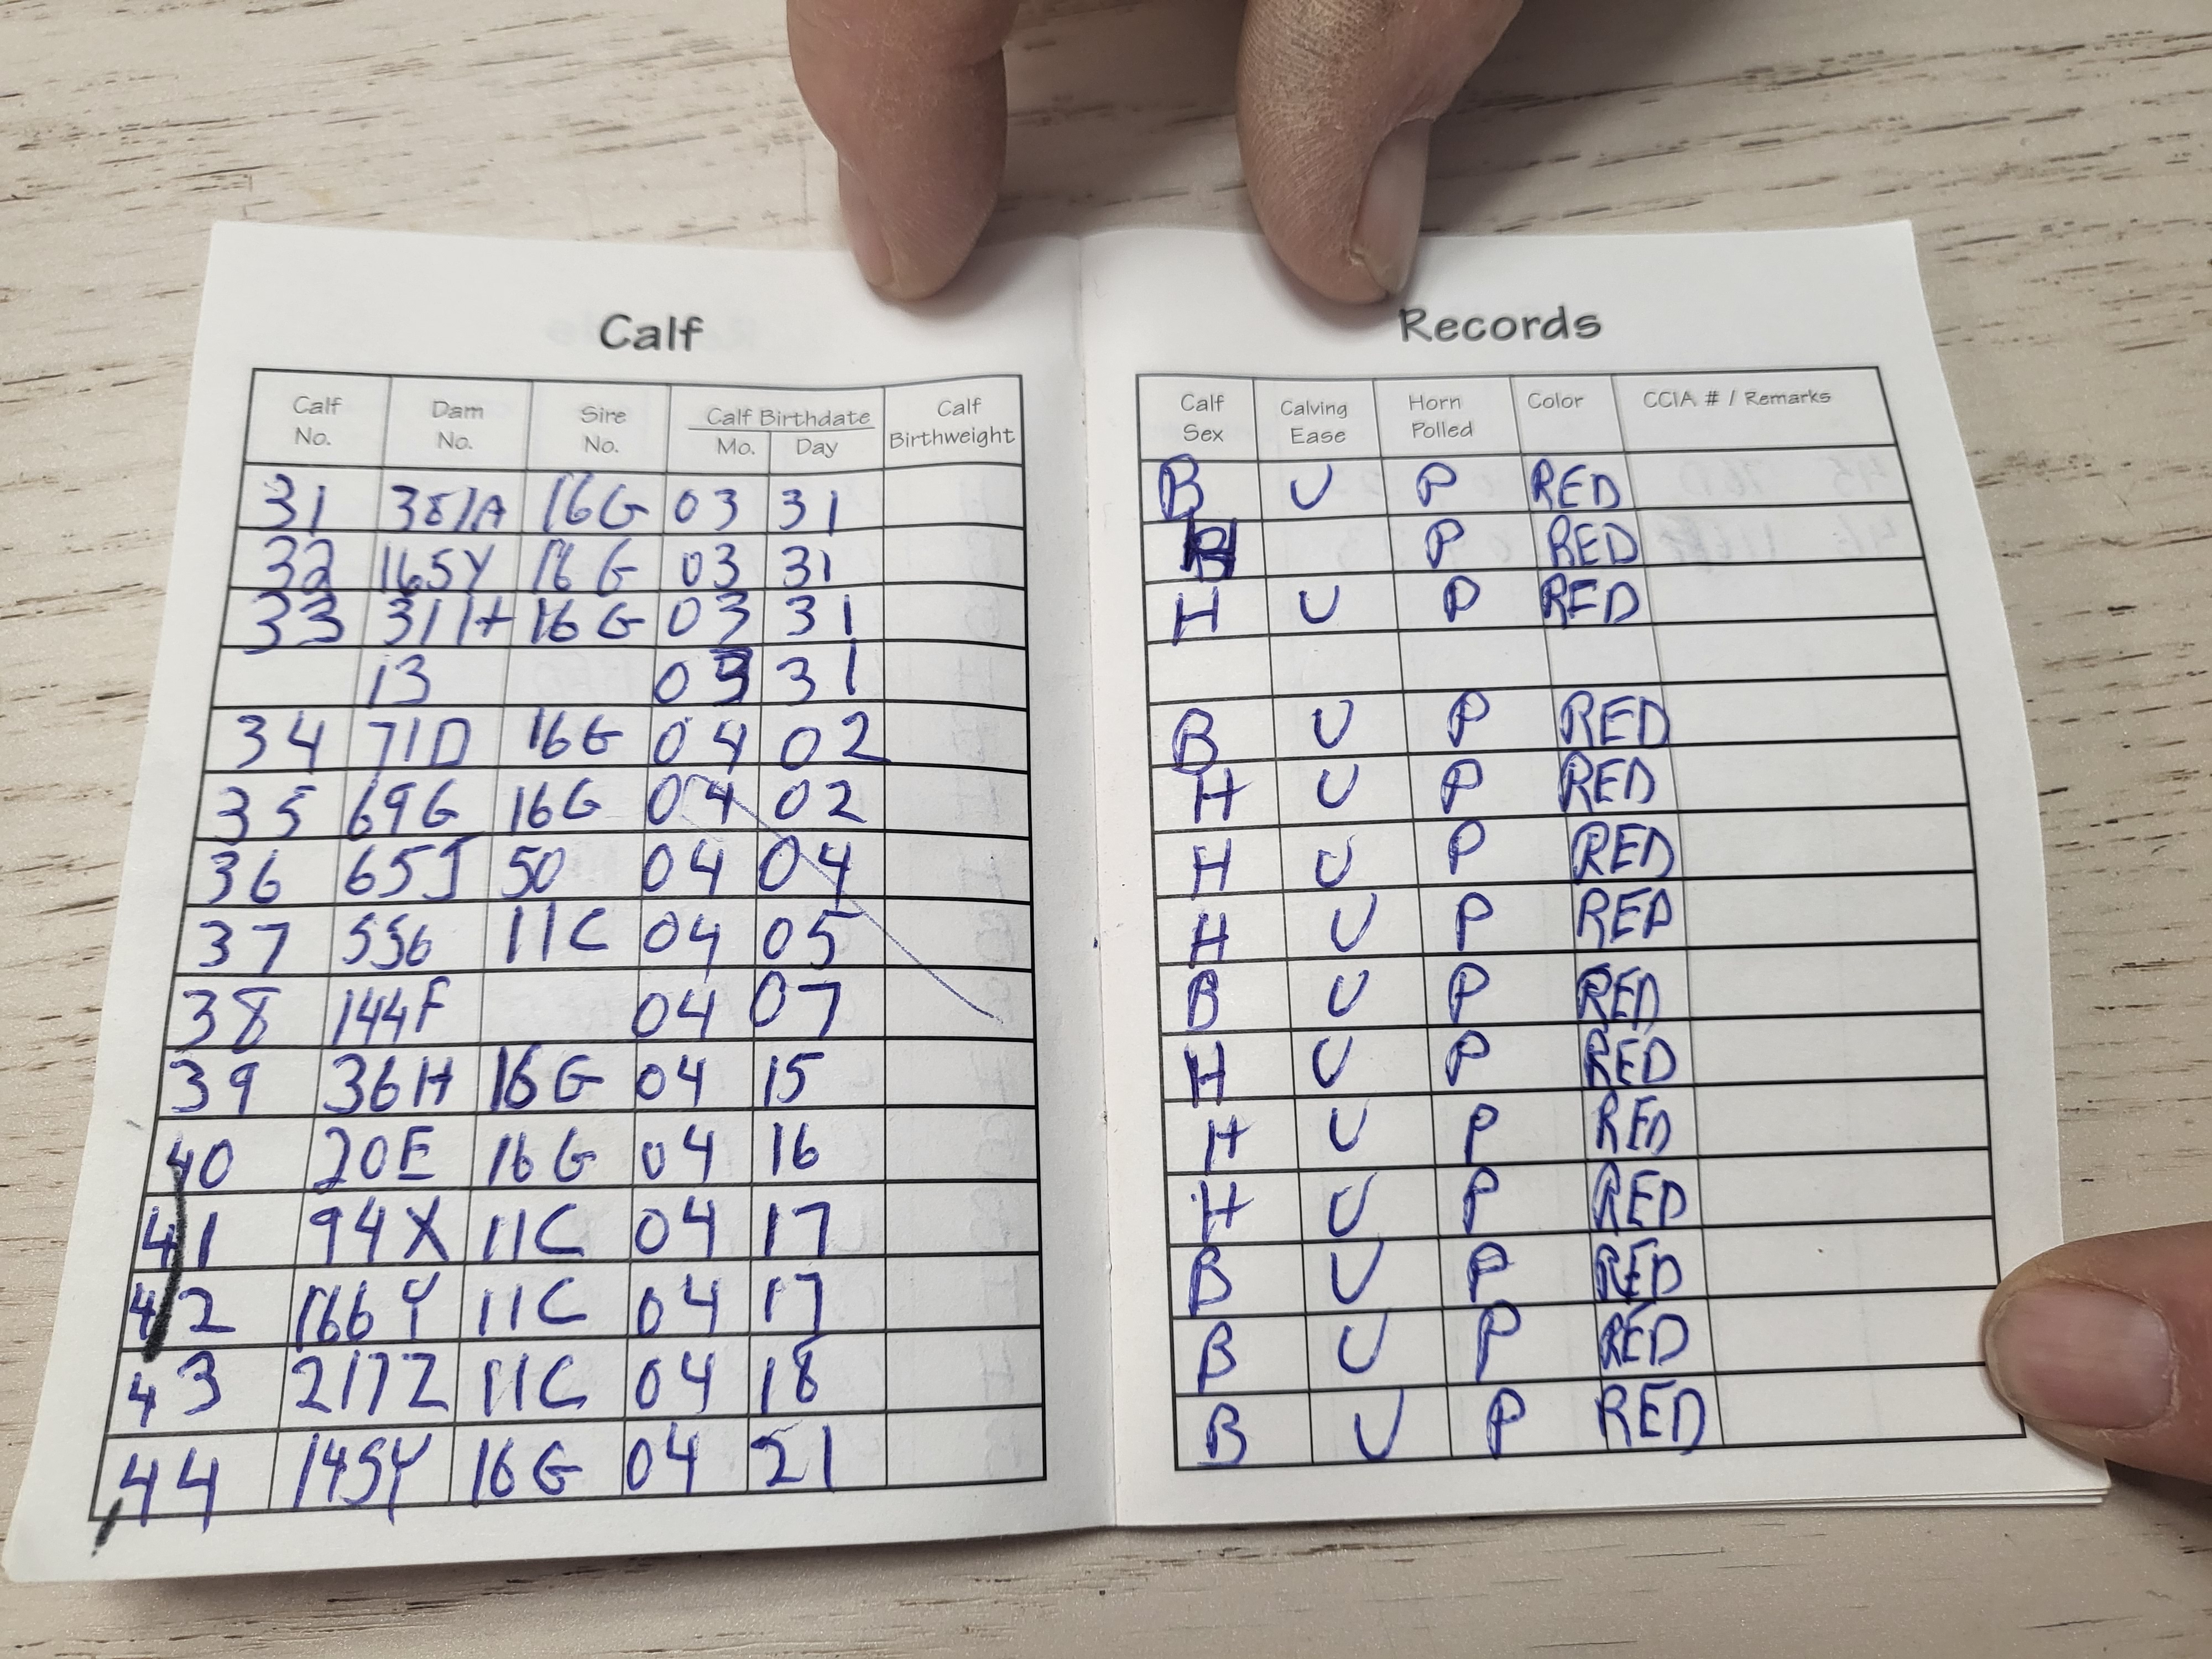 Calf Records
Calf No. Dam No. Sire No. Calf Birthdate Mo. Day Calf Birthweight Calf Sex Calving Ease Horn Polled Color CCIA # / Remarks
31 381A 16G 03 31 B U P RED
32 165Y 16G 03 31 P RED
33 311H 16G 03 31 H U P RED
13 03 31
34 71D 16G 04 02 B U P RED
35 69G 16G 04 02 H U P RED
36 65J 50 04 04 H U P RED
37 11C 04 05 H U P RED
38 144F 04 07 B U P RED
39 36H 16G 04 15 H U P RED
40 20E 16G 04 16 H U P RED
41 94X 11C 04 17 H U P RED
42 166Y 11C 04 17 B U P RED
43 217Z 11C 04 18 B U P RED
44 145Y 16G 04 21 B U P RED